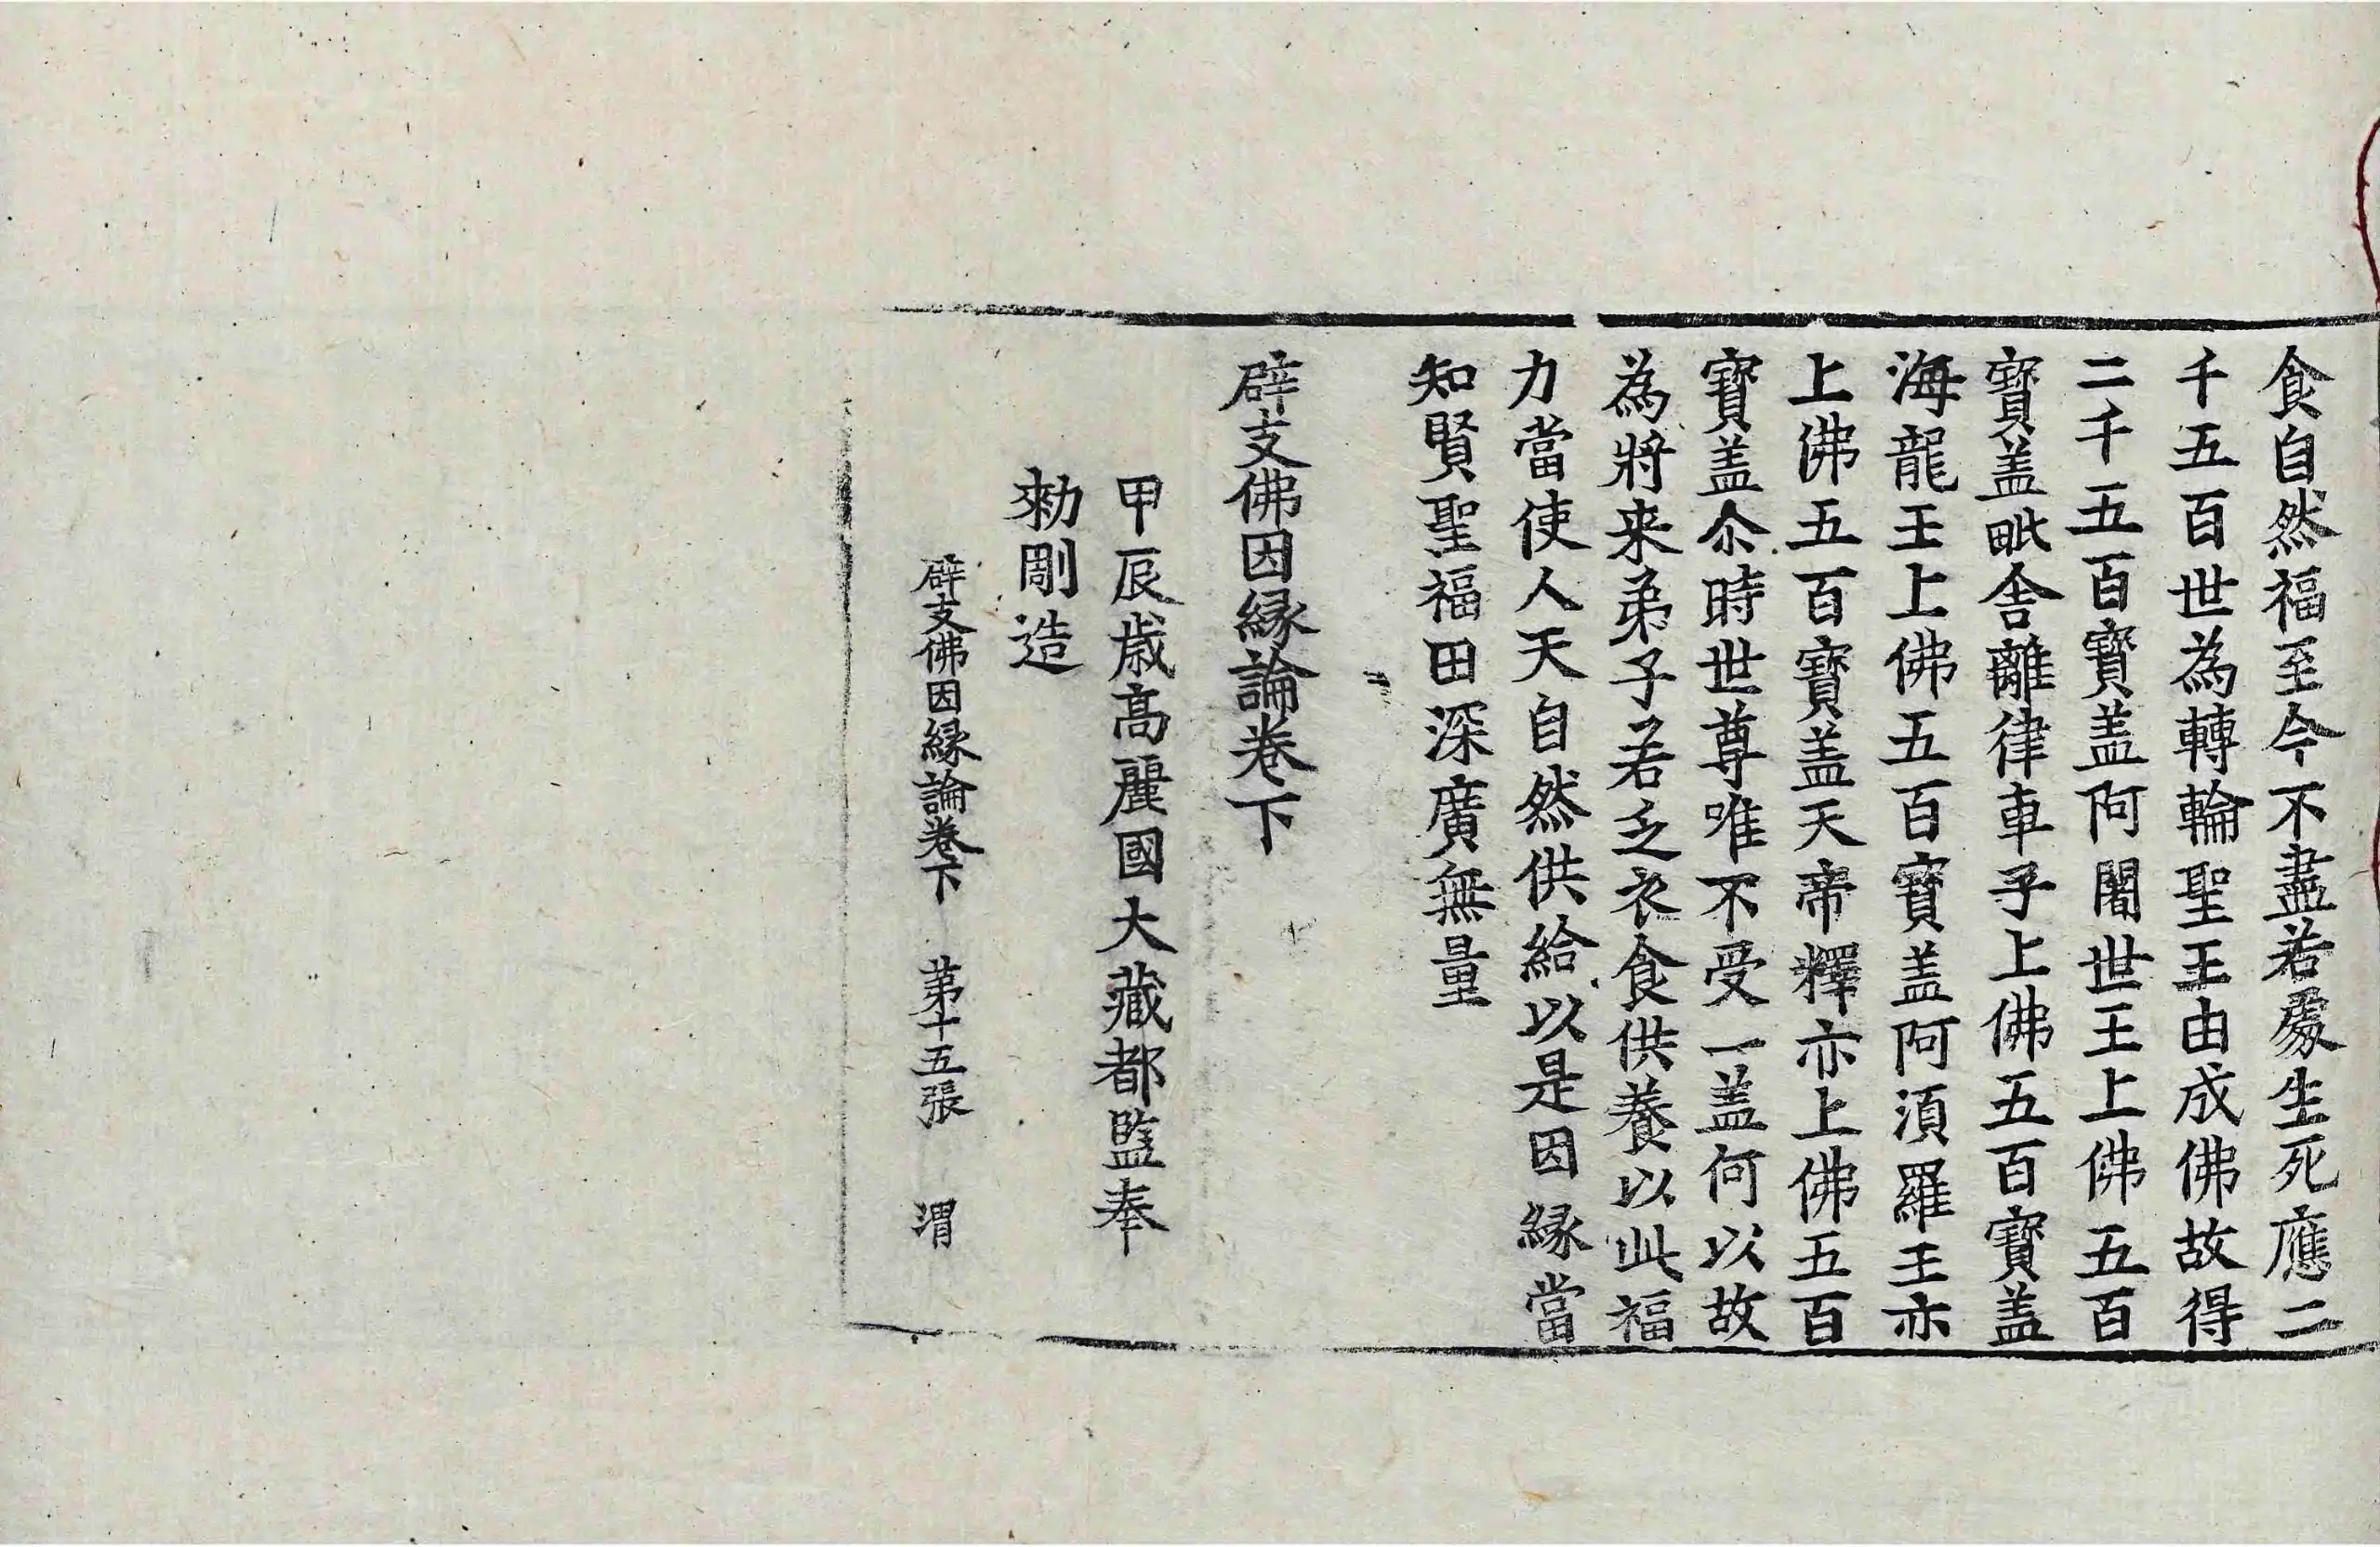 食自然福至今不盡若處生死應二
千五百世為轉輪聖王由成佛故得
二千五百寶盖阿闍世王上佛五百
寶盖毗舍離律車子上佛五百寶盖
海龍王上佛五百寶盖阿湏羅王亦
上佛五百寶盖天帝釋亦上佛五百
寶盖尒時世尊唯不受一盖何以故
為將来弟子若乏衣食供養以此福
力當使人天自然供給以是因緣當
知賢聖福田深廣無量
辟支佛因緣論卷下
甲辰歲高麗國大藏都監奉
勑彫造
辟支佛因緣論卷下 第十五張 渭